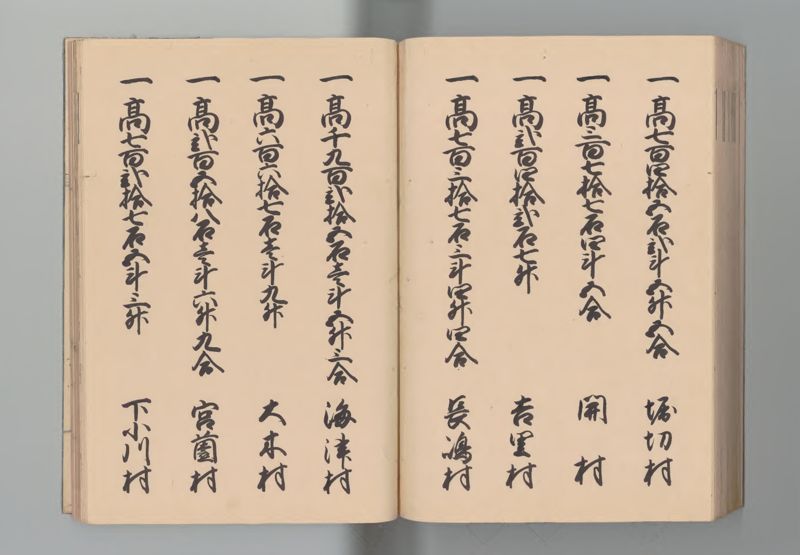 一 髙七百四拾五石弐斗五升五合 堀切村
一 髙三百七拾七石四斗五合 開村
一 髙弐百四拾弐石七升 吉里村
一 髙七百三拾七石三斗四升四合 長嶋村
一 髙千九百弐拾五石壱斗五升三合 海津村
一 髙六百六拾七石壱斗九升 大木村
一 髙弐百五拾八石壱斗六升九合 宮薗村
一 髙七百弐拾七石五斗三升 下小川村